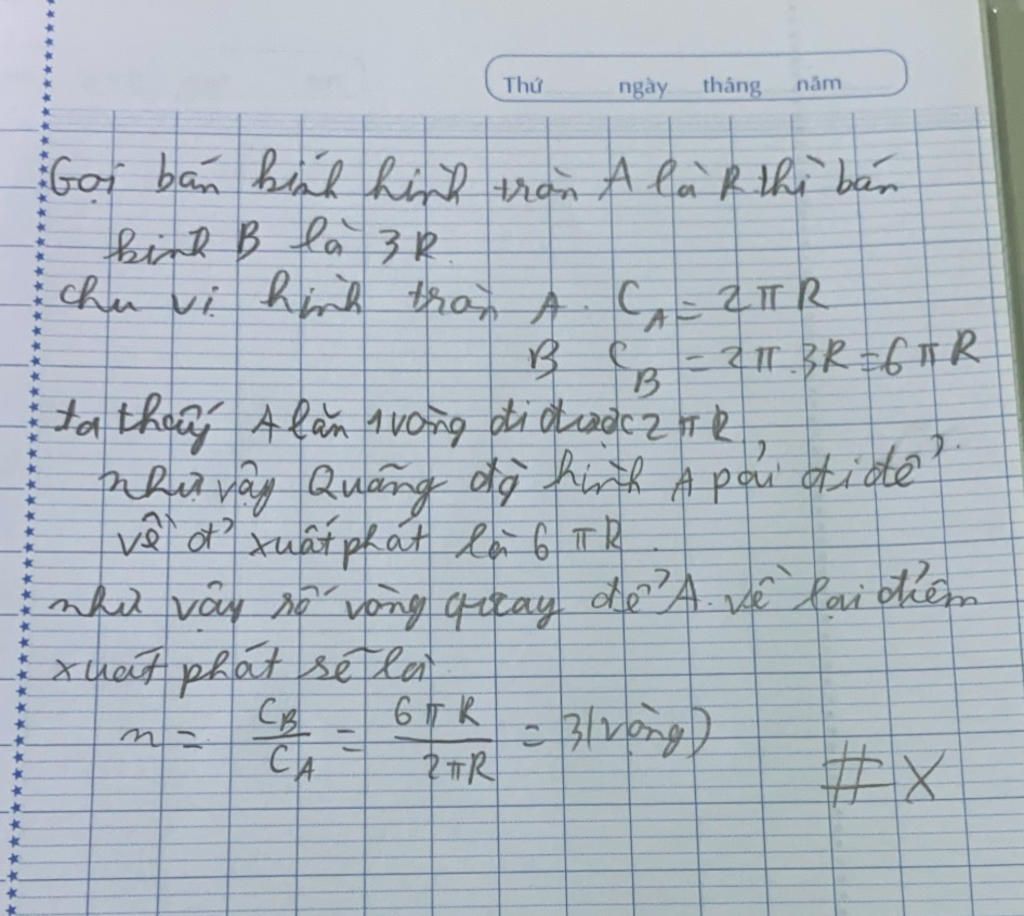 Thứ ngày tháng năm
Gọi bán kính hình tròn A là R thì bán
kính B là 3R.
chu vi hình tròn A. C_A = 2πR
B C_B = 2π.3R = 6πR
ta thấy A lăn 1 vòng đi được 2πR,
như vậy Quãng đg hình A pải đi để
về đ' xuất phát là 6πR.
như vậy số vòng quay để A. về lại điểm
xuất phát sẽ là
n = C_B/C_A = 6πR/2πR = 3(vòng)
# X